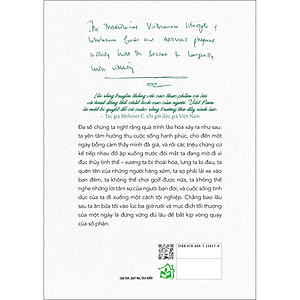 The Traditional Vietnamese lifestyle &
wholesome foods and ARDUOUS physical
activity hold the secret to longevity
with vitality
Lối sống truyền thống với các thực phẩm có lợi
và hoạt động thể chất tích cực của người Việt Nam
là một bí quyết để có cuộc sống trường thọ đầy sinh lực.
- Tác giả Mehmet C. Oz gửi độc giả Việt Nam
Đa số chúng ta nghĩ rằng quá trình lão hóa xảy ra như sau: chúng
ta yên tâm hưởng thụ cuộc sống hạnh phúc, cho đến
một ngày bỗng cảm thấy mình đã già, và rồi các triệu chứng cứ
kế tiếp nhau đổ ập xuống trước đôi mắt ta đang mờ đi vì
đục thủy tinh thể – xương ta bị thoái hóa, lưng ta bị đau, ta
quên tên của những người hàng xóm, ta sợ phải lái xe vào
ban đêm, ta không thể chơi golf được nữa, ta không thể
nghe những lời tâm sự của người bạn đời, và cuộc sống tình
dục của ta đi xuống một cách tồi nghiệp. Chẳng bao lâu
sau ta ăn bữa tối vào lúc ba giờ rưỡi và mục đích đối tượng
của một ngày là đứng vững đủ lâu để bắt kịp vòng quay
của số phận.